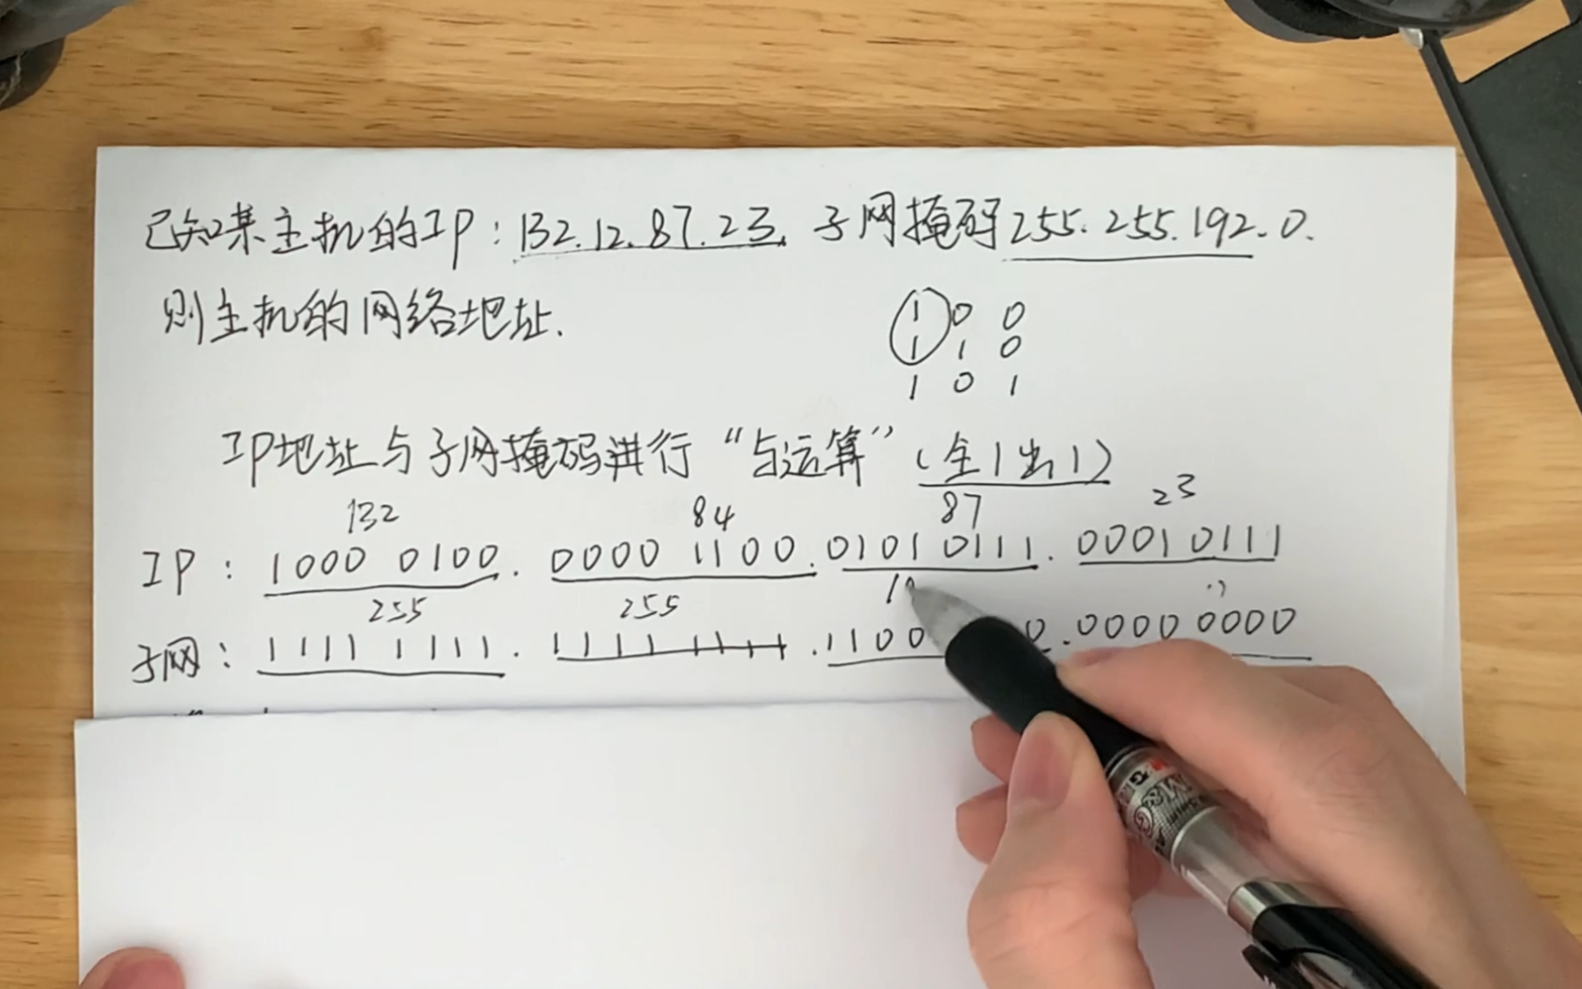 已知某主机的IP:132.12.87.23, 子网掩码255.255.192.0.
则主机的网络地址.
1 0 0
1 1 0
1 0 1
IP地址与子网掩码进行“与运算”(全1出1)
132 84 87 23
IP: 1000 0100. 0000 1100. 0101 0111. 0001 0111
255 255 1
子网: 1111 1111. 1111 1111. 1100 0. 0000 0000